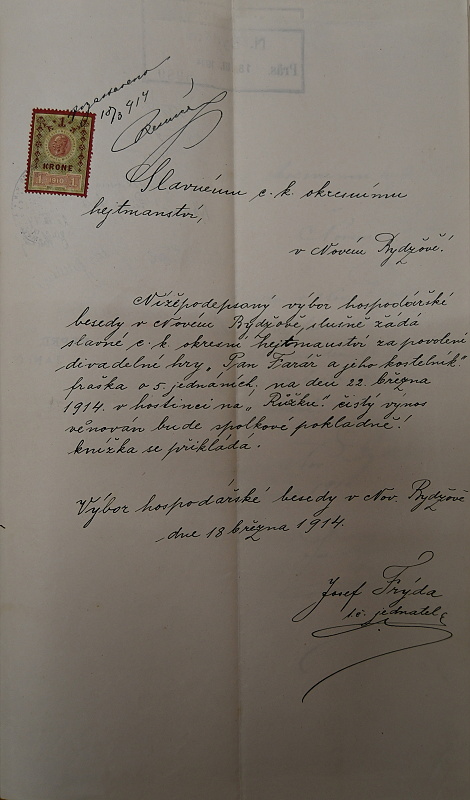 18/3 914
KRONE
1 1910 1
Slavnému c. k. okresnímu
hejtmanství,
v Novém Bydžově!
Nížěpodepsaný výbor hospodářské
besedy v Novém Bydžově, slušně žádá
slavné c. k. okresní hejtmanství za povolení
divadelní hry „Pan Farář a jeho kostelník"
fraška o 5. jednáních, na den 22. března
1914. v hostinci na „Růžku". čistý výnos
věnován bude spolkové pokladně!
knížka se přikládá.
Výbor hospodářské besedy v Nov. Bydžově
dne 18 března 1914.
Josef Frýda
t. č. jednatel